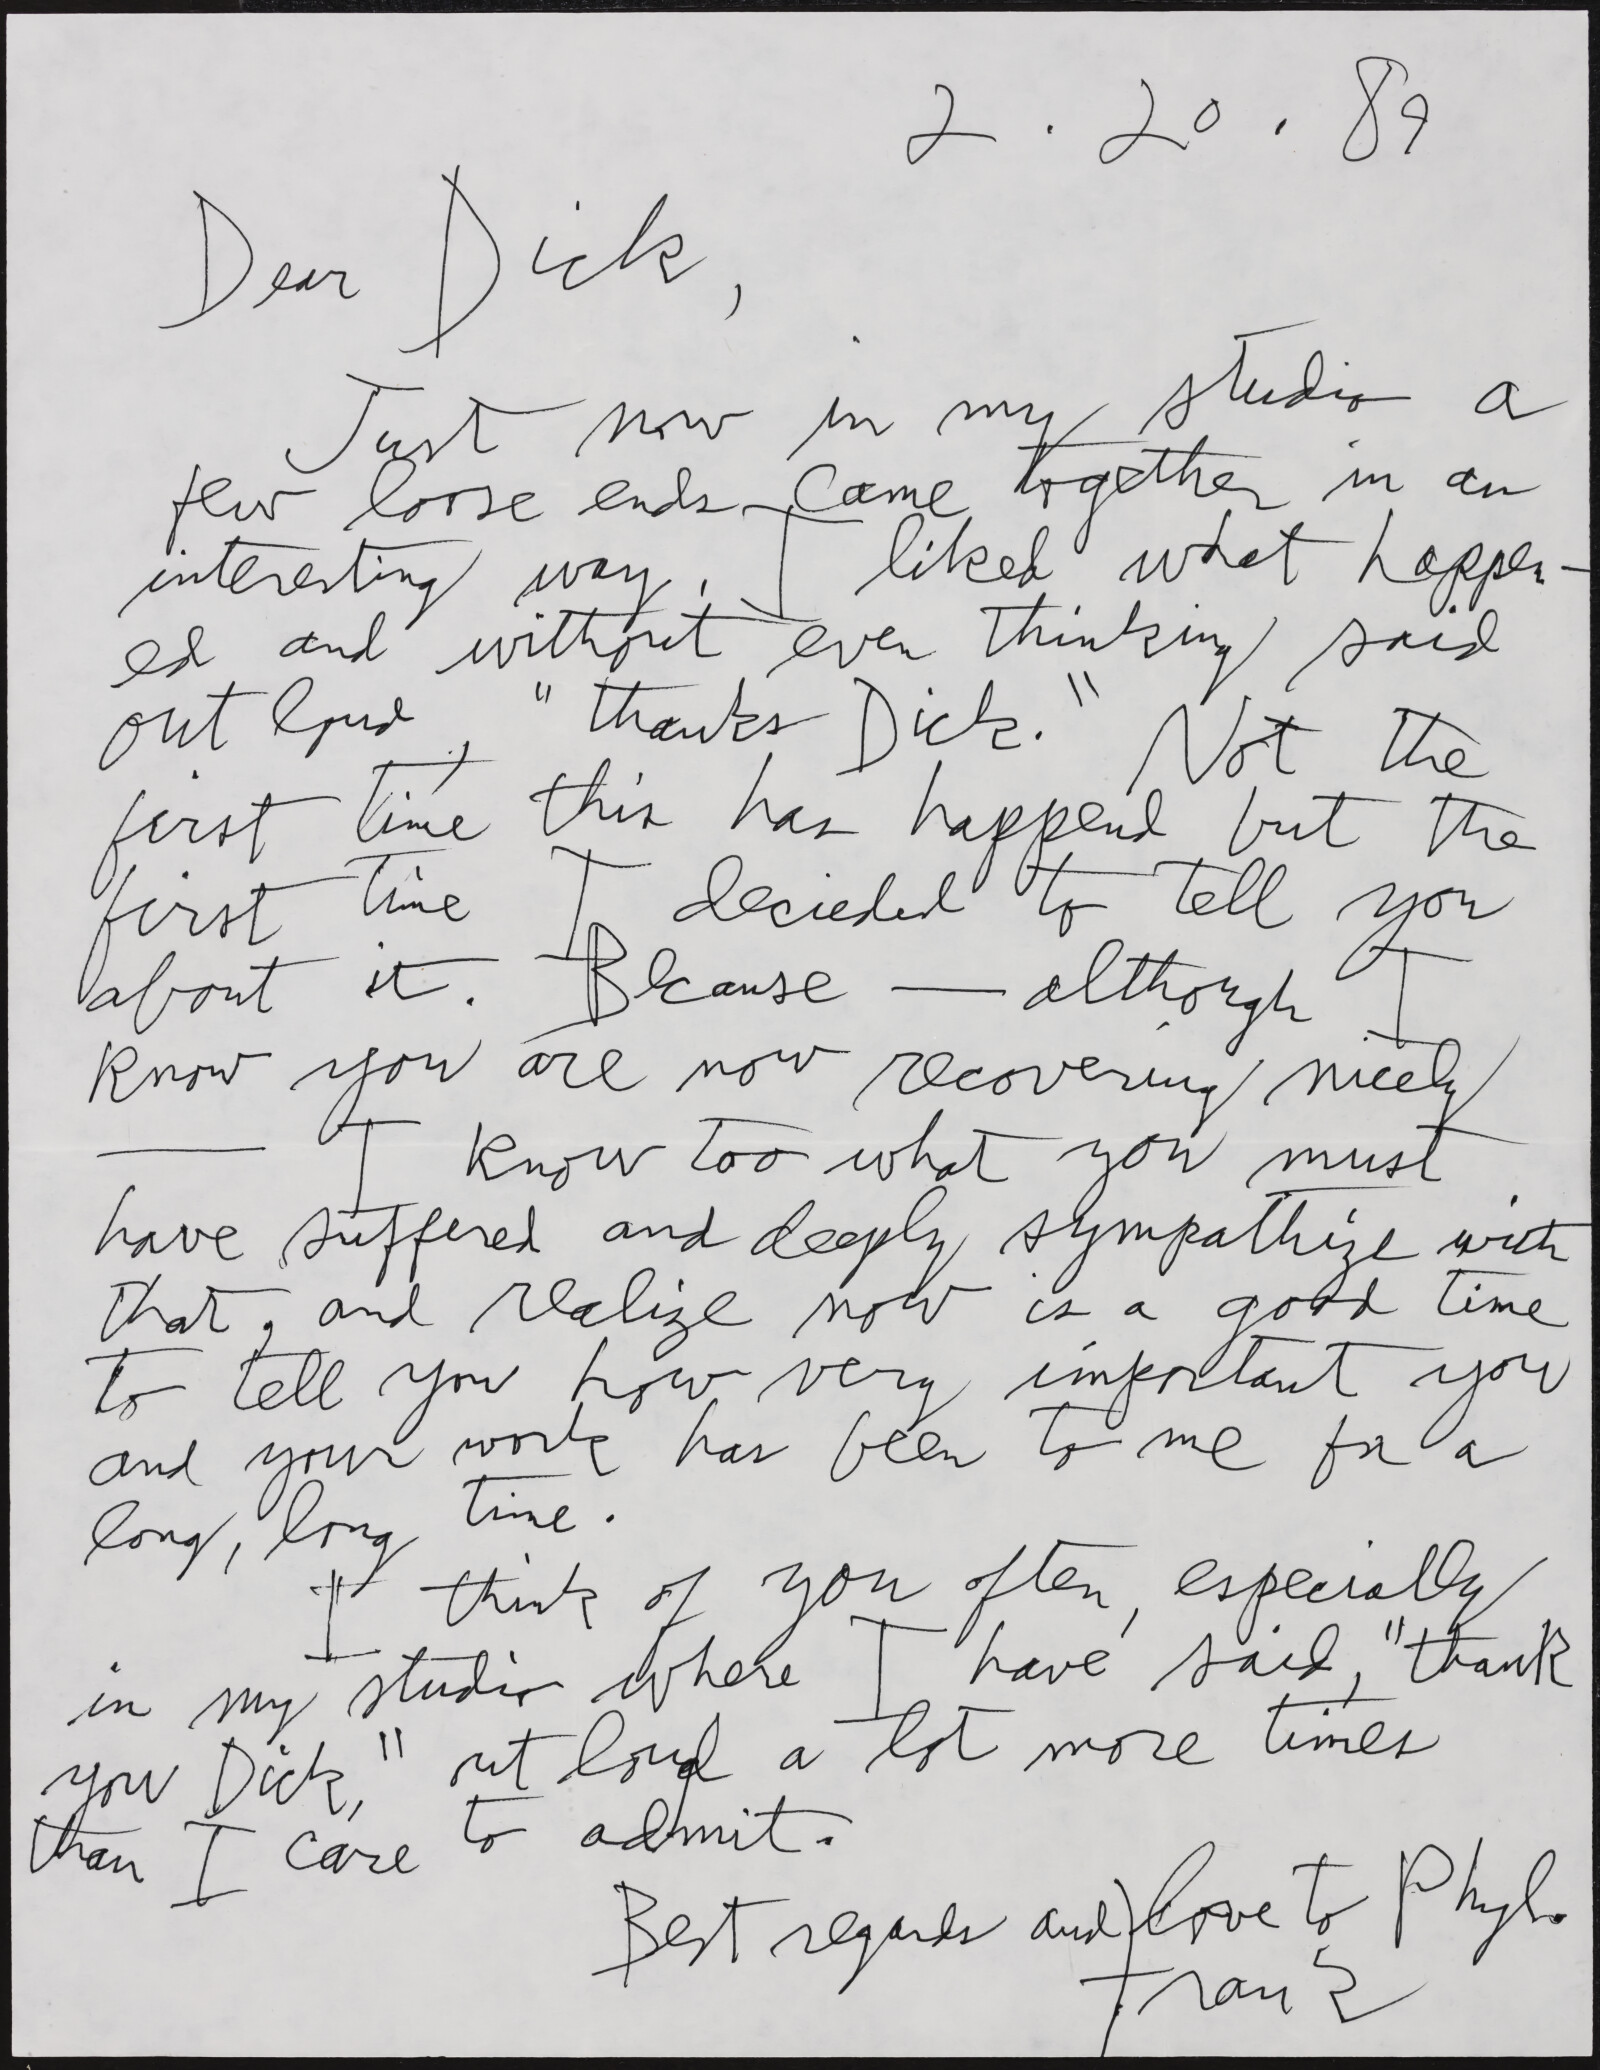 2 . 20 . 89
Dear Dick,
Just now in my studio a
few loose ends came together in an
interesting way. I liked what happen-
ed and without even thinking said
out loud, "thanks Dick." Not the
first time this has happend but the
first time I decieded to tell you
about it. Because — although I
know you are now recovering nicely
— I know too what you must
have suffered and deeply sympathize with
that, and realize now is a good time
to tell you how very important you
and your work has been to me for a
long, long time.
I think of you often, especially
in my studio where I have said, "thank
you Dick," out loud a lot more times
than I care to admit.
Best regards and love to Phyl.
Frank